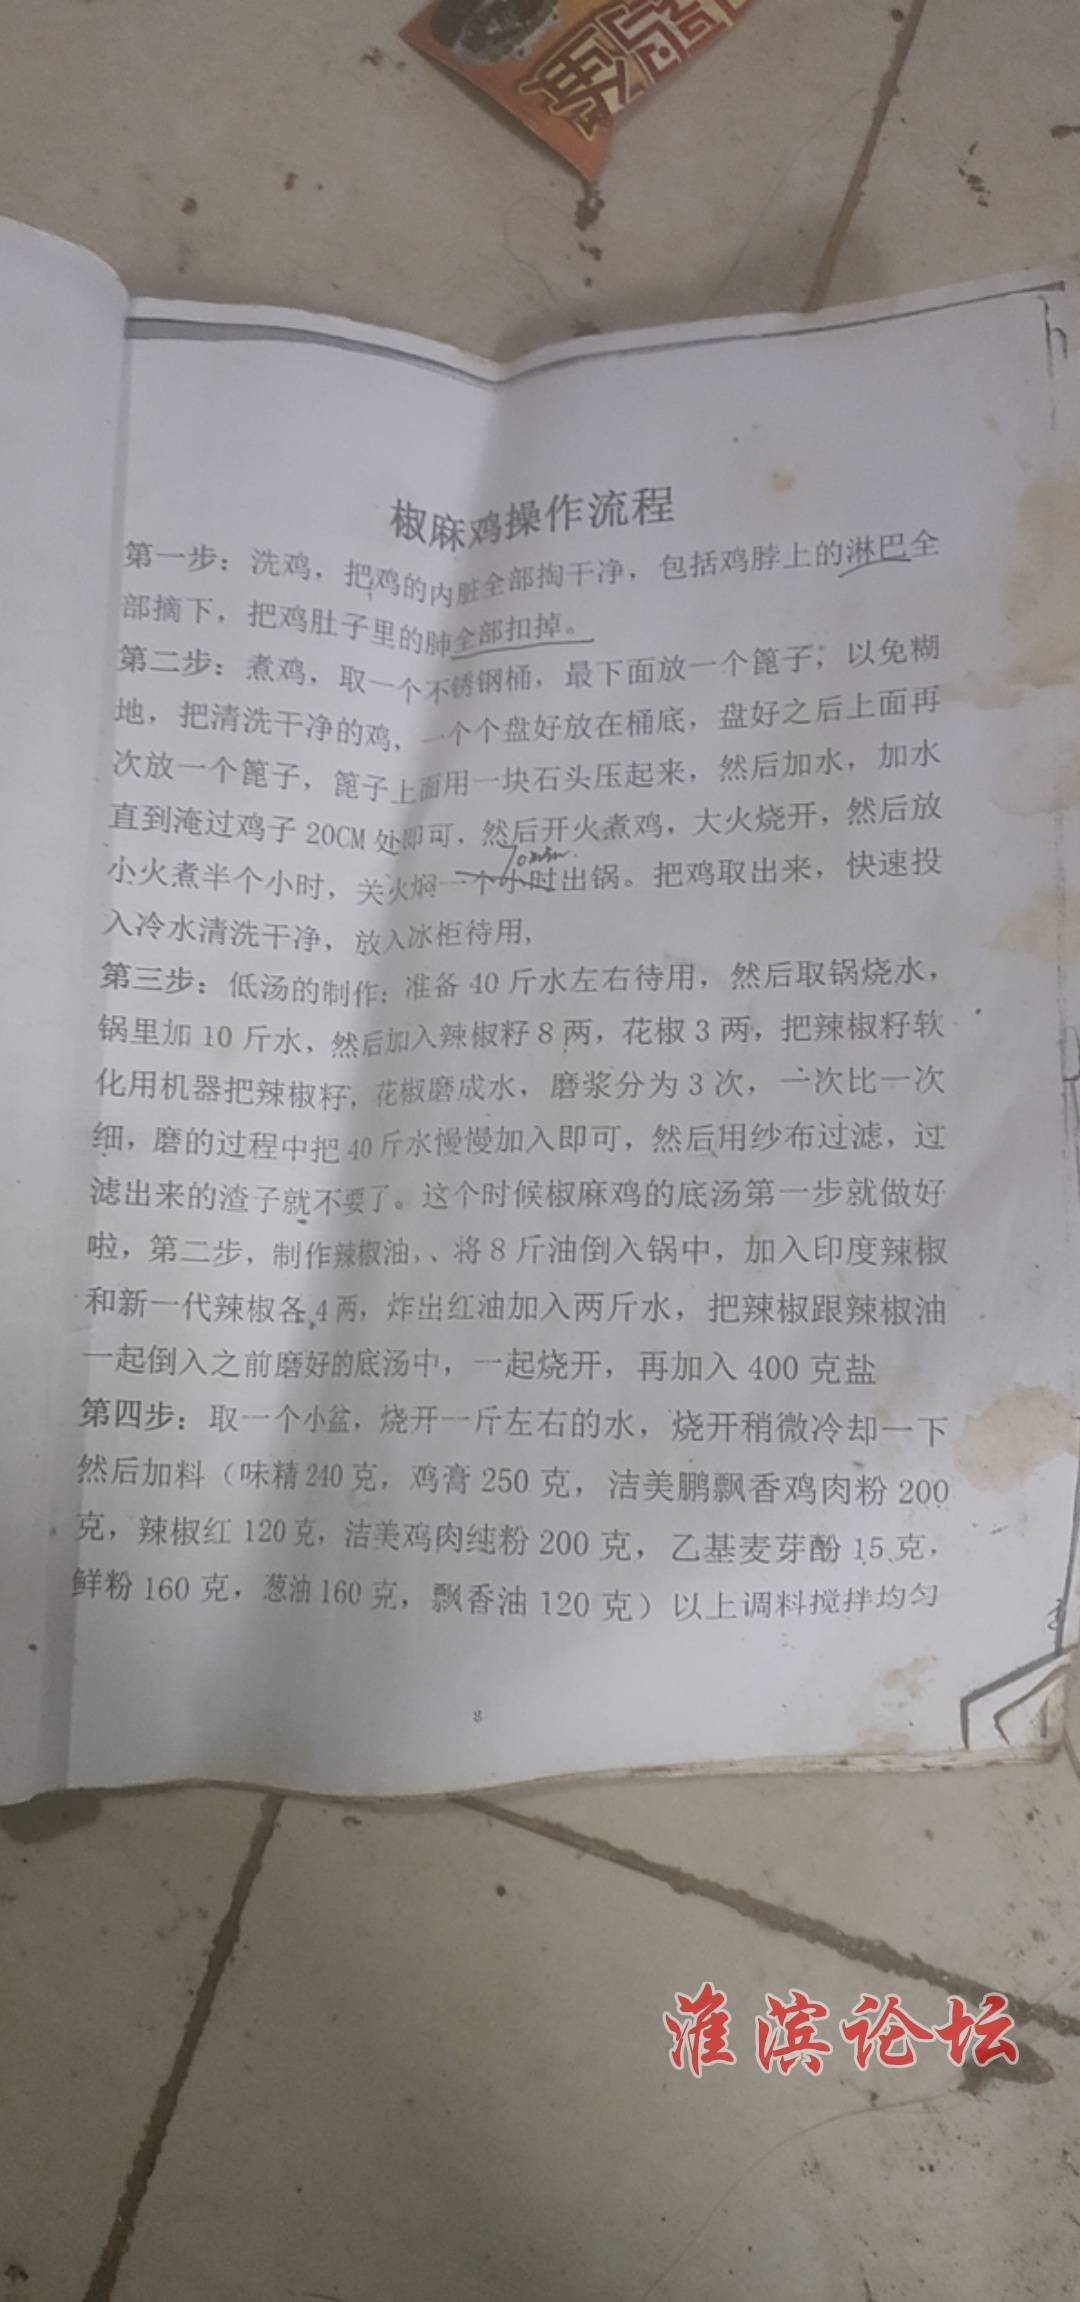 椒麻鸡操作流程
第一步：洗鸡，把鸡的内脏全部掏干净，包括鸡脖上的淋巴全
部摘下，把鸡肚子里的肺全部扣掉。
第二步：煮鸡，取一个不锈钢桶，最下面放一个篦子，以免糊
地，把清洗干净的鸡，一个个盘好放在桶底，盘好之后上面再
次放一个篦子，篦子上面用一块石头压起来，然后加水，加水
直到淹过鸡子20CM处即可，然后开火煮鸡，大火烧开，然后放
小火煮半个小时，关火焖一个小时出锅。把鸡取出来，快速投
入冷水清洗干净，放入冰柜待用，
第三步：低汤的制作：准备40斤水左右待用，然后取锅烧水，
锅里加10斤水，然后加入辣椒籽8两，花椒3两，把辣椒籽软
化用机器把辣椒籽，花椒磨成水，磨浆分为3次，一次比一次
细，磨的过程中把40斤水慢慢加入即可，然后用纱布过滤，过
滤出来的渣子就不要了。这个时候椒麻鸡的底汤第一步就做好
啦，第二步，制作辣椒油，、将8斤油倒入锅中，加入印度辣椒
和新一代辣椒各4两，炸出红油加入两斤水，把辣椒跟辣椒油
一起倒入之前磨好的底汤中，一起烧开，再加入400克盐
第四步：取一个小盆，烧开一斤左右的水，烧开稍微冷却一下
然后加料（味精240克，鸡膏250克，洁美鹏飘香鸡肉粉200
克，辣椒红120克，洁美鸡肉纯粉200克，乙基麦芽酚15克，
鲜粉160克，葱油160克，飘香油120克）以上调料搅拌均匀
8
淮滨论坛